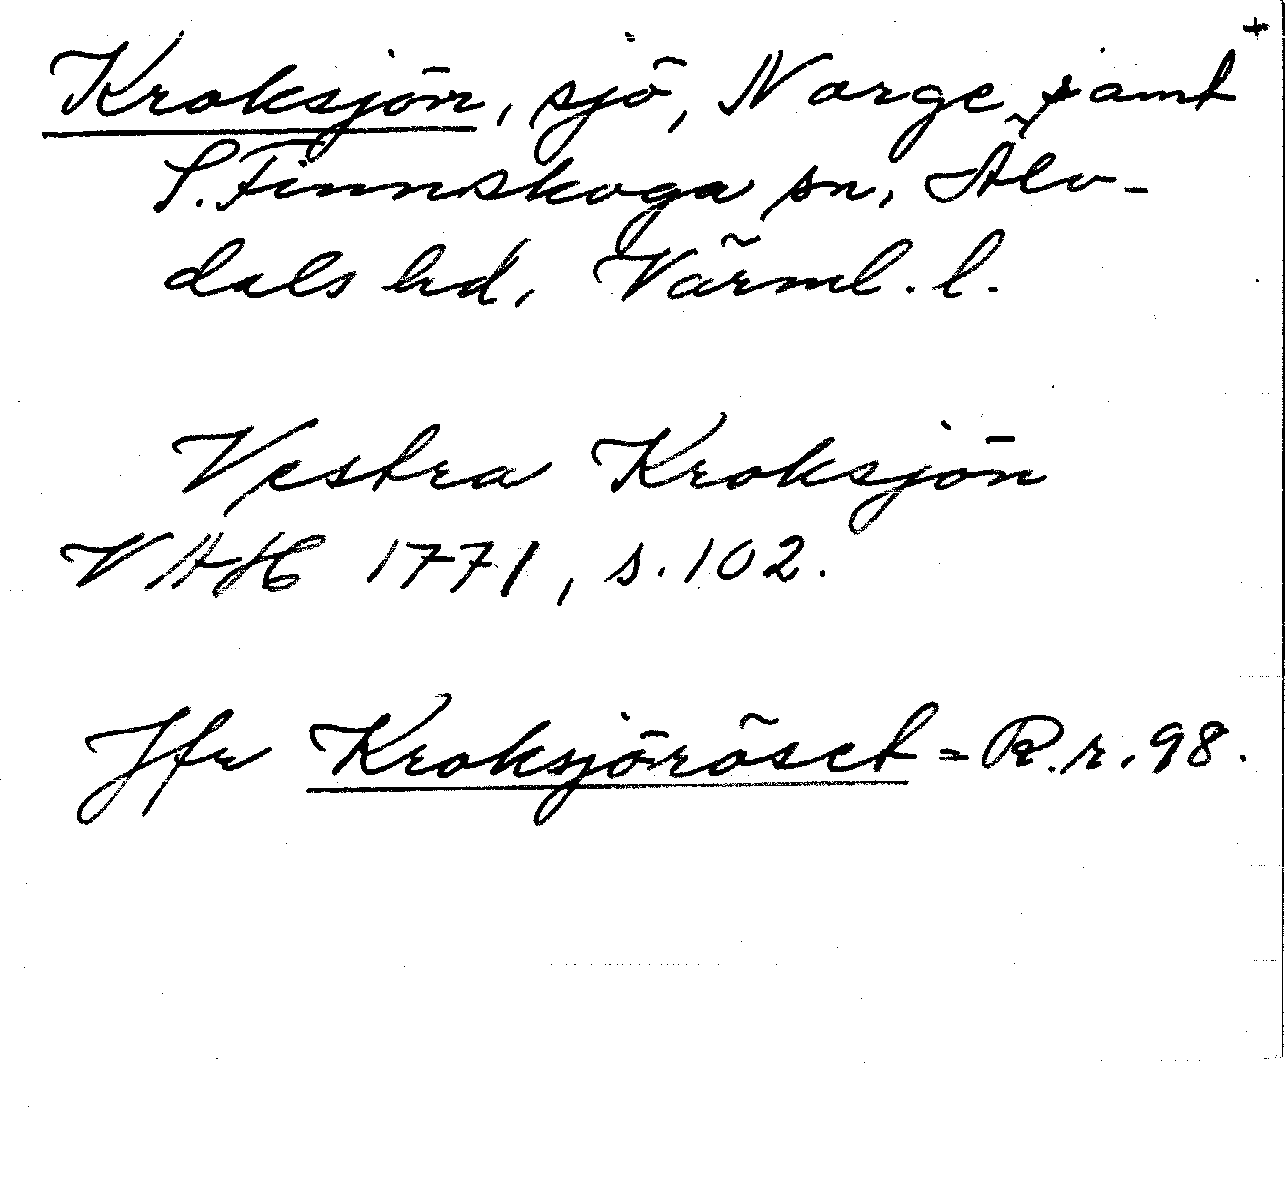 +
Kroksjön, sjö, Norge samt
S. Finnskoga sn, Älv-
dals hd, Värml. l.
Vestra Kroksjön
VAH 1771, s. 102.
Jfr Kroksjöröset = R.r. 98.